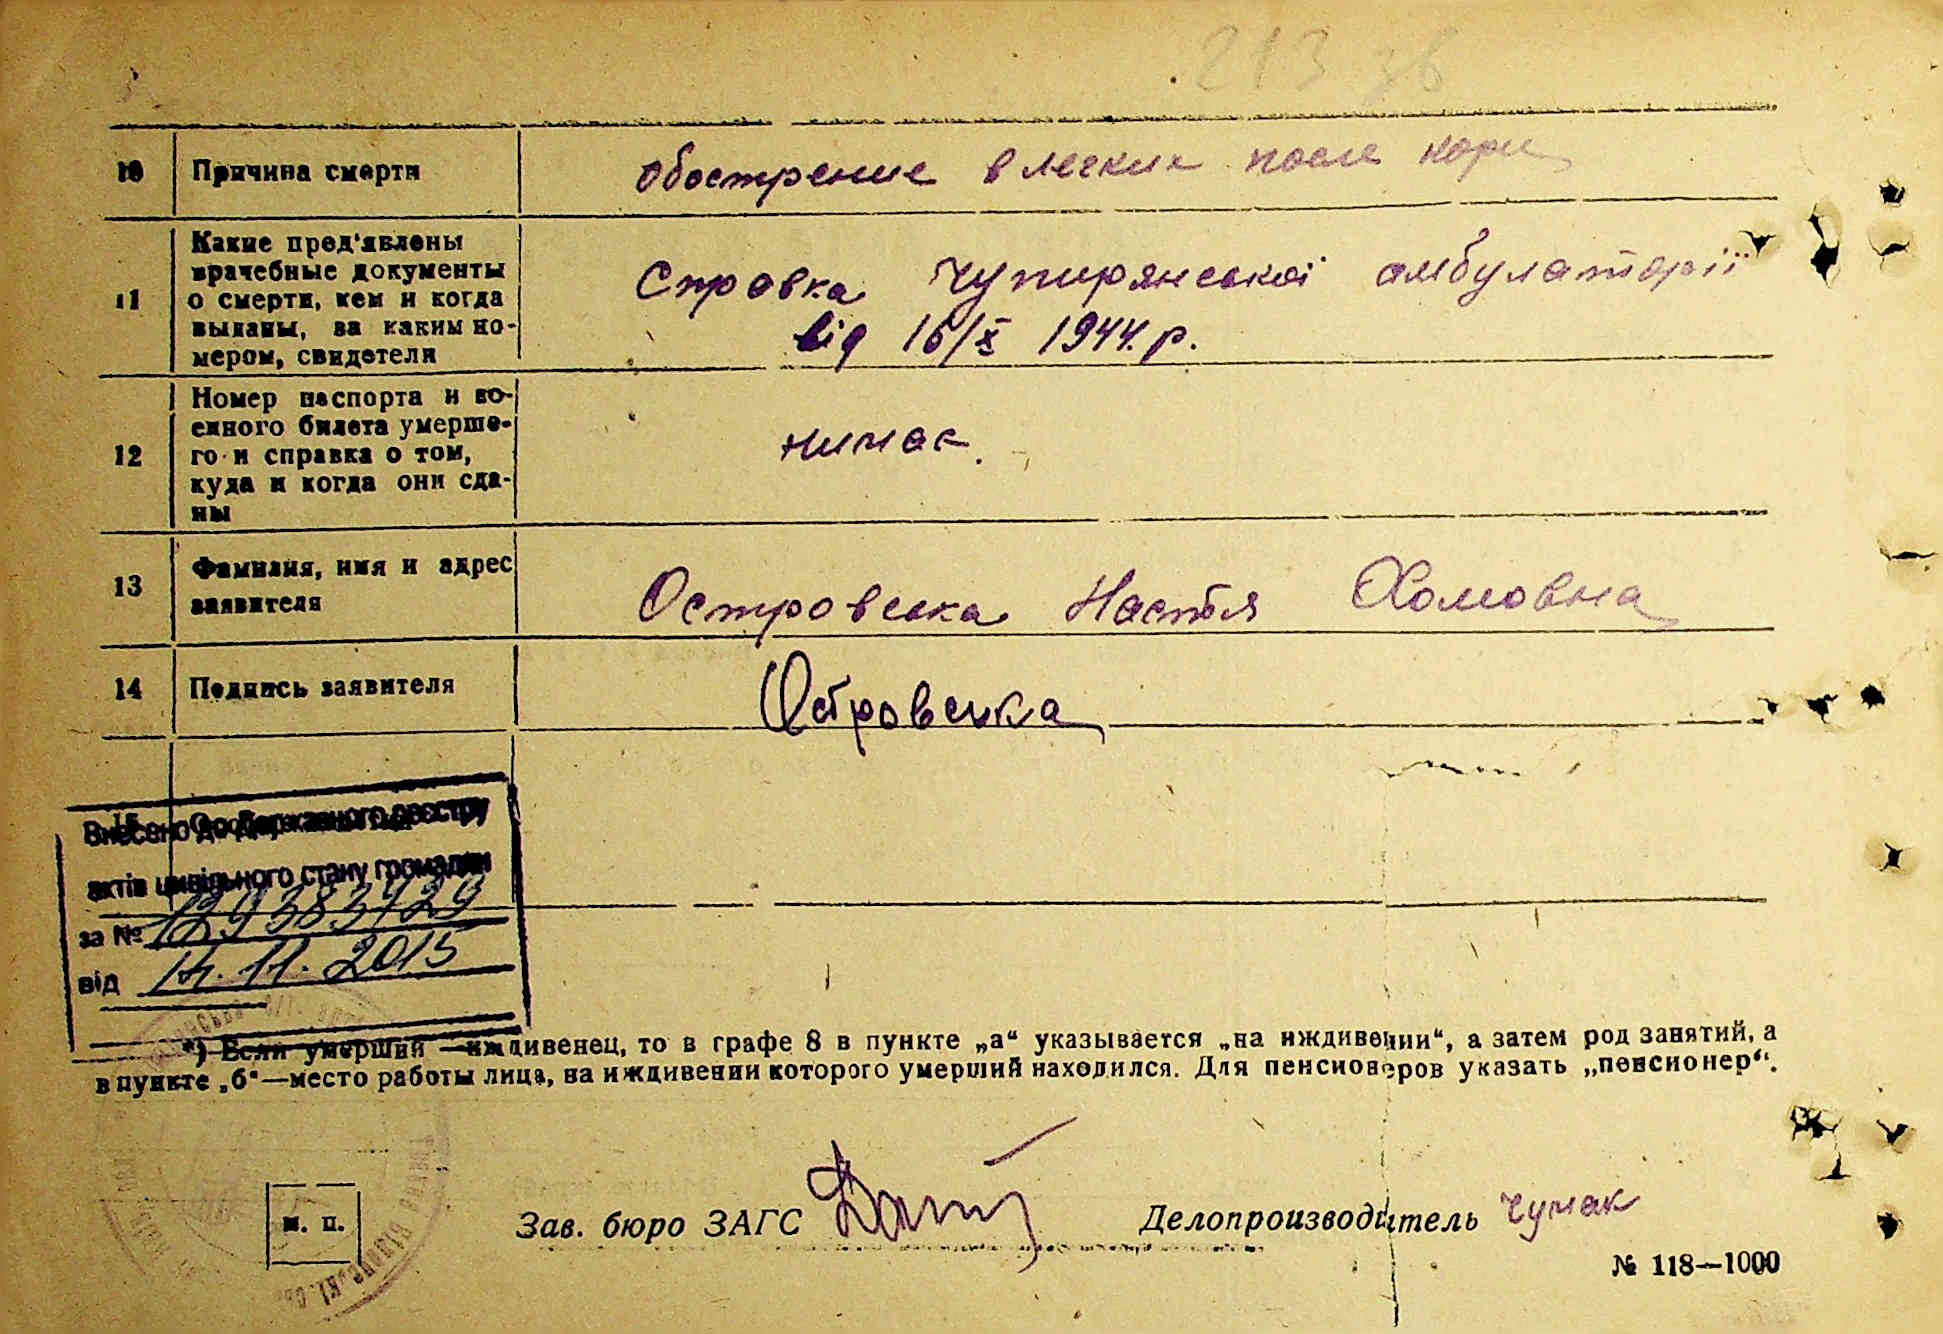 213 зв
10 Причина смерти обострение в легких после кори
11 Какие пред'явлены врачебные документы о смерти, кем и когда выданы, за каким но-мером, свидетели
Справка Чупирянської амбулаторії
від 16/X 1944.р.
12 Номер паспорта и во-енного билета умерше-го и справка о том, куда и когда они сда-ны
нимає.
13 Фамилия, имя и адрес заявителя Островська Настя Хомовна
14 Подпись заявителя Островська
15
Внесено до Державного реєстру
актів цивільного стану громадян
за № 129383429
від 14.11.2015
*) Если умерший —иждивенец, то в графе 8 в пункте „а“ указывается „на иждивении“, а затем род занятий, а
в пункте „б“—место работы лица, на иждивении которого умерший находился. Для пенсионеров указать „пенсионер“.
м. п.
Зав. бюро ЗАГС Делопроизводитель Чумак
№ 118—1000